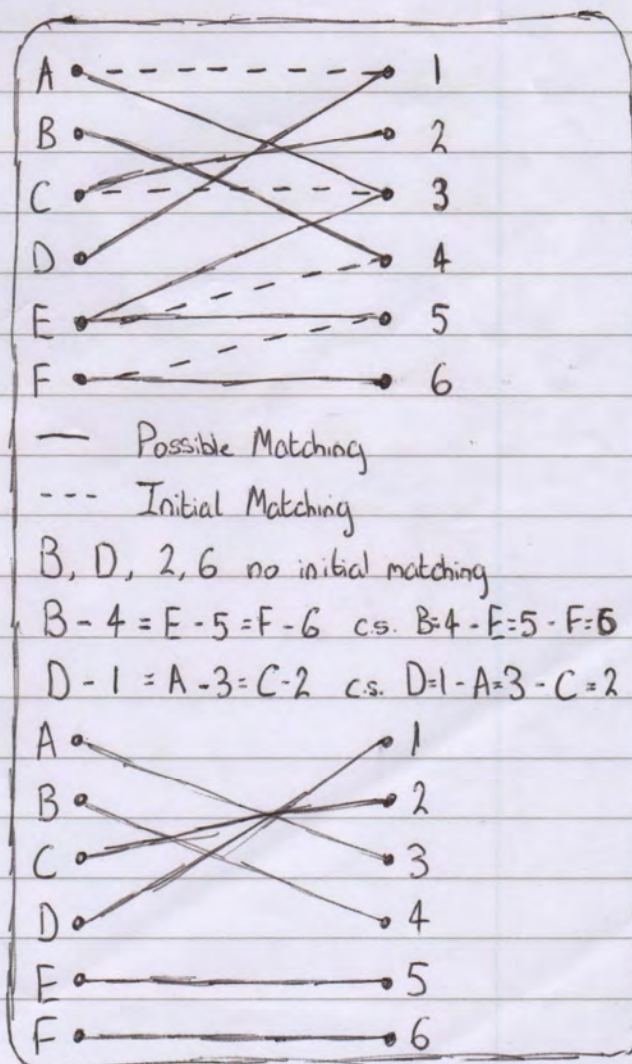 A 1
B 2
C 3
D 4
E 5
F 6
— Possible Matching
--- Initial Matching
B, D, 2, 6 no initial matching
B - 4 = E - 5 = F - 6 c.s. B=4 - E=5 - F=6
D - 1 = A - 3 = C - 2 c.s. D=1 - A=3 - C=2
A 1
B 2
C 3
D 4
E 5
F 6